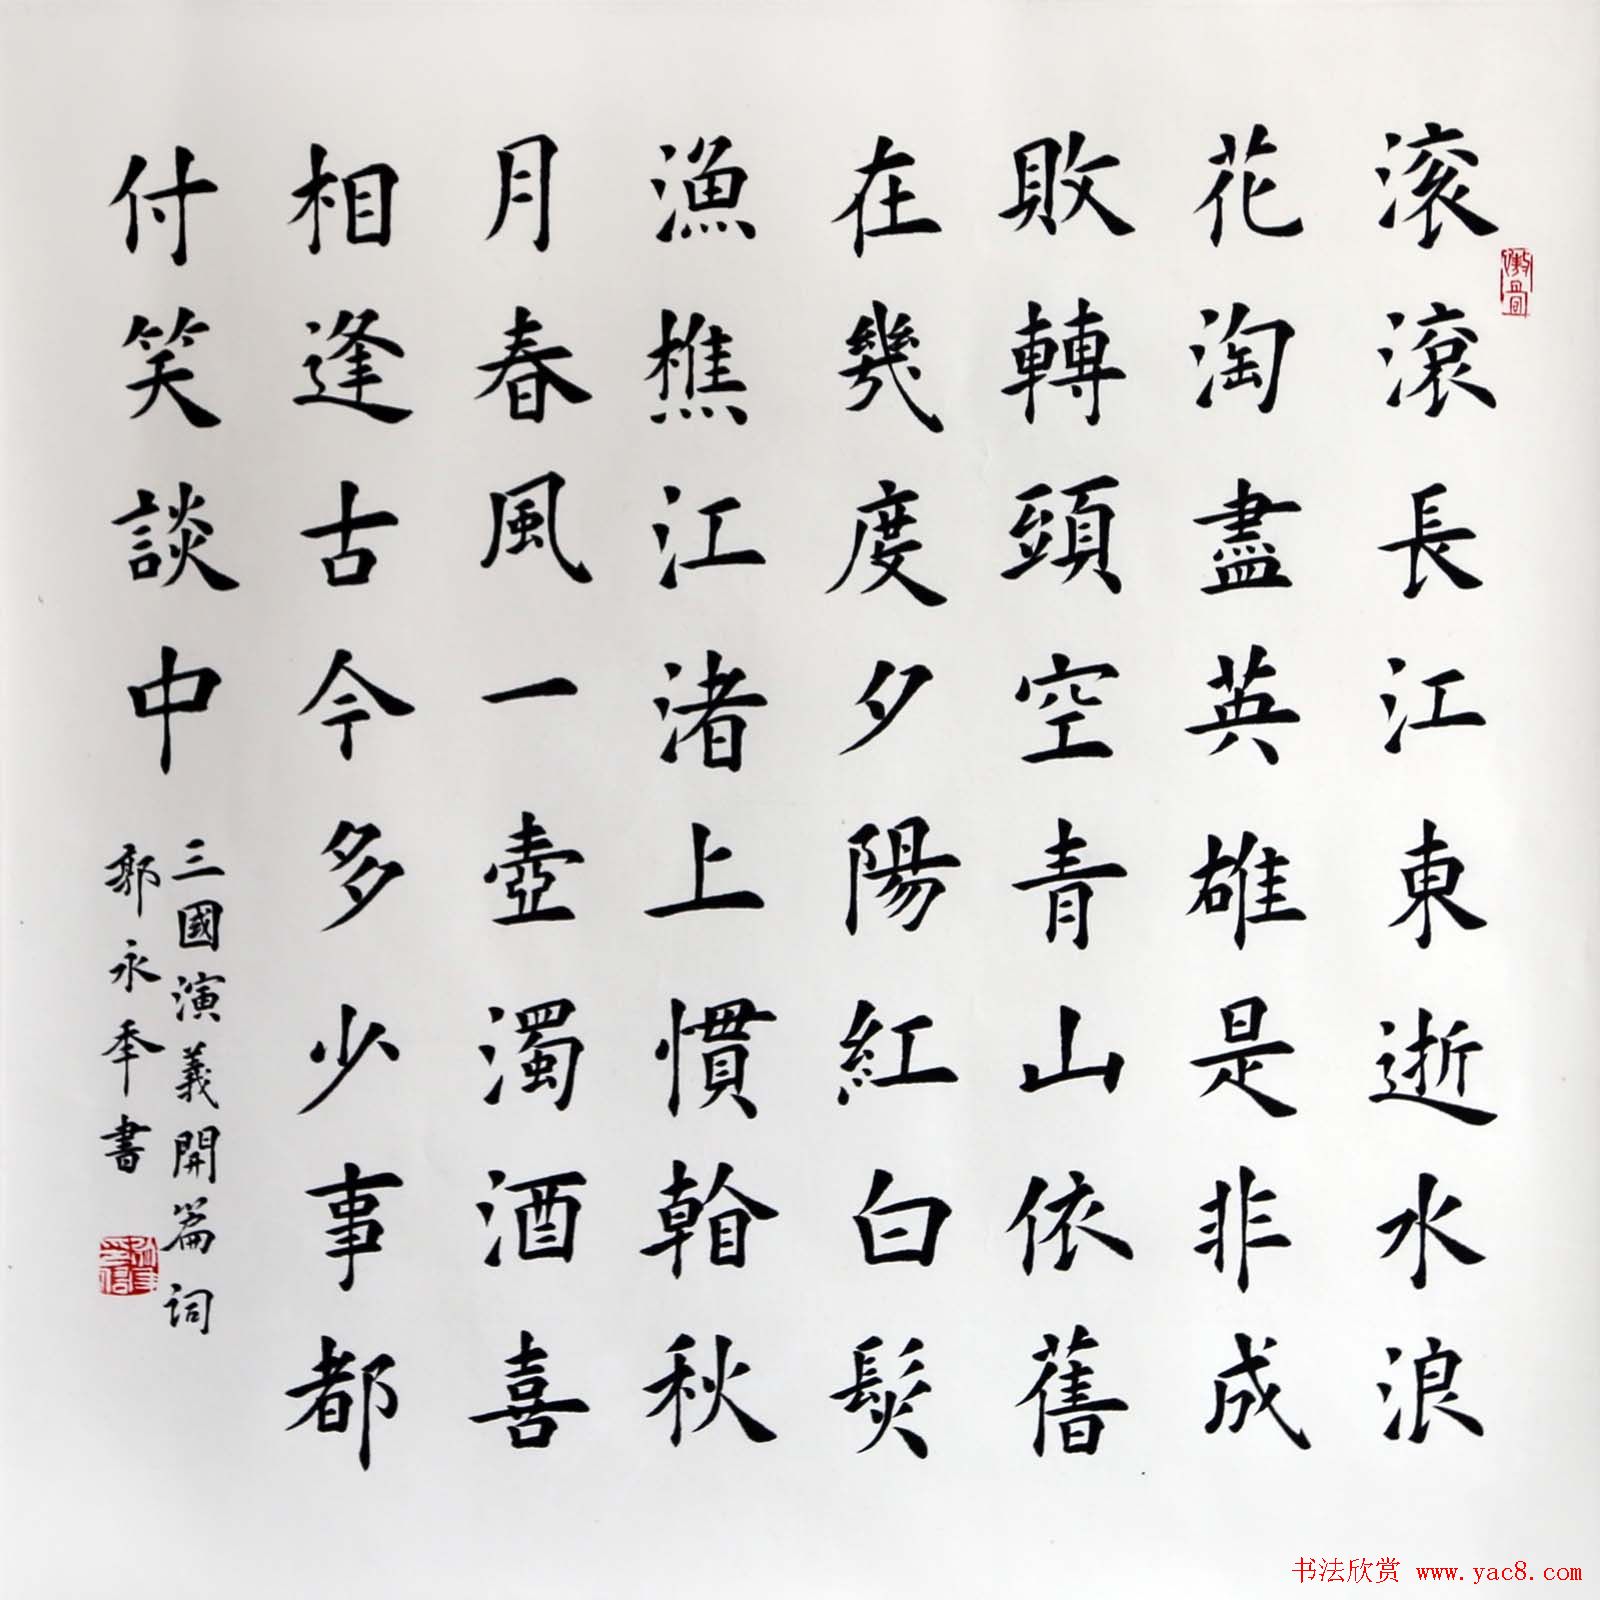 滚滾長江東逝水浪
花淘盡英雄是非成
敗轉頭空青山依舊
在幾度夕陽紅白髮
漁樵江渚上慣看秋
月春風一壺濁酒喜
相逢古今多少事都
付笑談中
三國演義開篇詞
郭永年書
书法欣赏 www.yac8.com